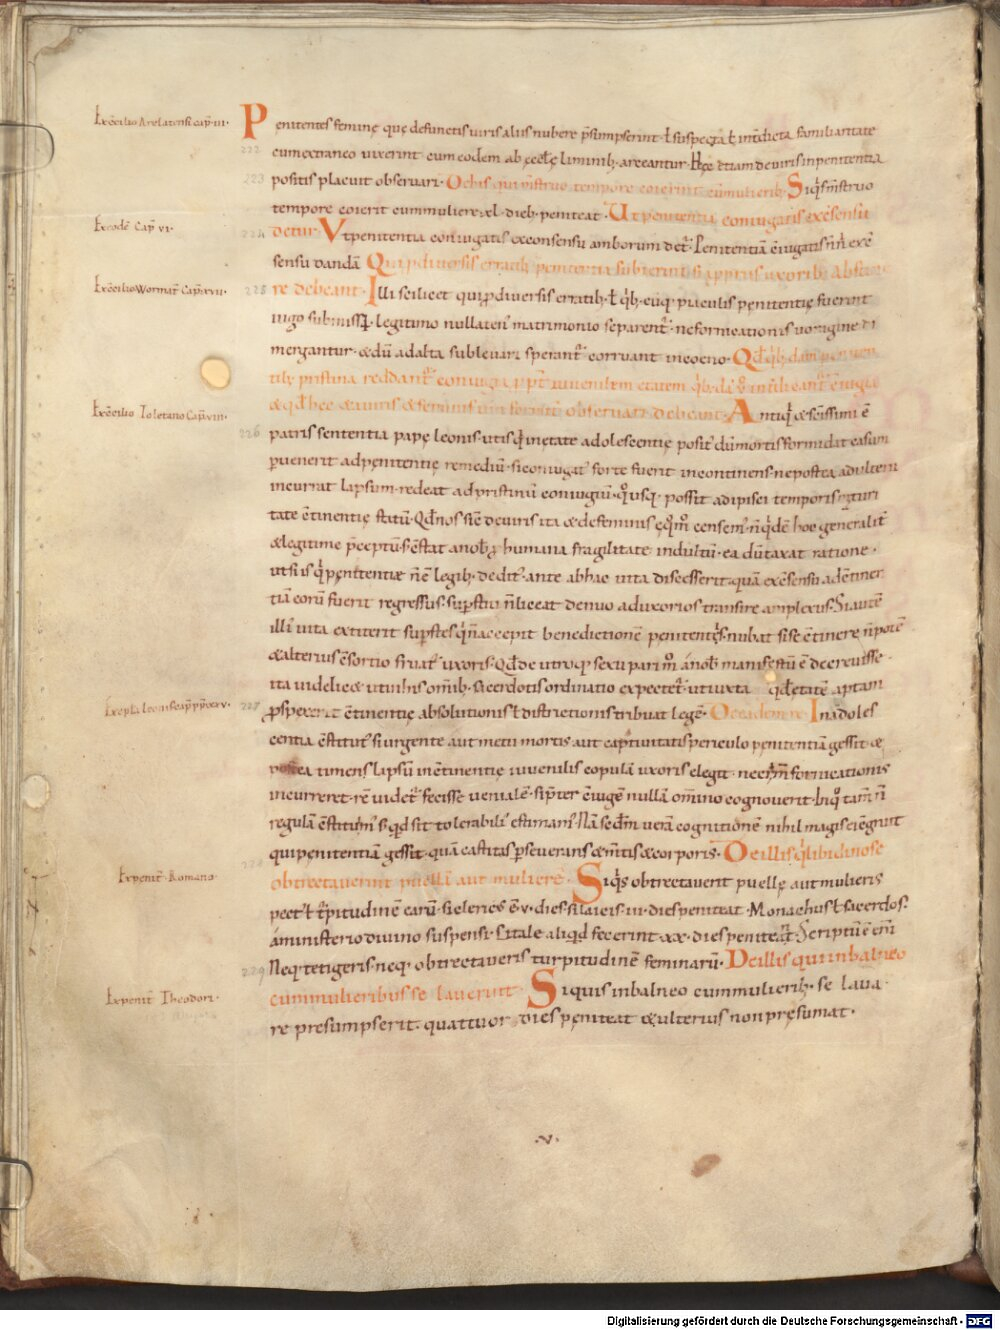 Exc̄cilio Arelatensi cap̄ iii.
Penitentes feminę quę defunctis uiris aliis nubere p̄sumpserint. ł suspecta ł int̄dicta familiaritate
222
cum extraneo uixerint cum eodem ab ęcclę liminib; arceantur. Hęc etiam de uiris in penitentia
223 positis placuit obseruari. De his qui m̄struo tempore coierint cū mulierib; Siq̇s m̄struo
tempore coierit cum muliere xl. dieb; peniteat. Ut penitentia coniugatis ex c̄sensu
Exeodē Cap̄ vi.
224 detur. Vt penitentia coniugatis ex consensu amborum det̄. Penitentiā c̄iugatis n̄ n̄ ex c̄
sensu dandā Qui p̄ diuersis erratib; penitentia subierint si a pp̄riis uxorib; abstine
Exc̄cilio Wormat̄ Cap̄ xvii.
225 re debeant. Illi scilicet qui p̄ diuersis erratib; ł q̇b; cūq; piaculis penitentię fuerint
iugo submissi. legitimo nullaten' matrimonio separent̄. ne fornicationis uoragine di
mergantur. & dū ad alta subleuari sperant̄ corruant in coeno. Qd̄ q̇b; dam peniten
tib; pristina reddant̄ coniugia
Exc̄cilio Toletano Cap̄ viii.
& qd̄ hec & in uiris & feminis uniformit̄ obseruari debeant. Antiq̇ & sc̄issimi ē
226 patris sententia papę leonis. ut is q̇ in ętate adolescentię posit' dū mortis formidat casum
puenerit ad pęnitentię remediū. si coniugat' forte fuerit incontinens. ne postea adulterii
incurrat lapsum. redeat ad pristinū coniugiū. q̊usq; possit adipisci temporis maturi
tate c̄tinentię statū. Qd̄ nos sic̄ de uiris ita & de feminis ęq̊ m̊ censem'. n̄ q̇dē hoc generalit̄
& legitime p̄ceptū. s; c̄stat a nob̄ p̄ humana fragilitate indultū. ea dūtaxat ratione.
ut si is q̇ pęnitentiæ n̄ ē legib; dedit' ante ab hac uita discesserit. quā ex c̄sensu ad c̄tinen
tiā eorū fuerit regressus. sup̄stiti n̄ liceat denuo ad uxorios transire amplexus. Si autē
illi' uita extiterit sup̄stes q̇ n̄ accepit benedictionē penitentis. nubat si se c̄tinere n̄ potē
& alterius c̄sortio fruat̄ uxoris. Qd̄ de utroq; sexu pari m̊ a nob̄ manifestū ē decreuisse.
ita uidelic& ut in his om̄ib; sacerdotis ordinatio expectet̄. ut iuxta qd̄ ętatē aptam
Exepła leonis pap̄
227 p̄spexerit c̄tinentię absolutionis ł districtionis tribuat legē. De eadem re In adoles
centia c̄stitut' si urgente aut metu mortis aut captiuitatis periculo pęnitentiā gessit &
postea timens lapsū inc̄tinentię iuuenilis copulā uxoris elegit. ne crim̄ fornicationis
incurreret. rē uidet̄ fecisse uenialē. si p̄ter c̄iugē nullā om̄ino cognouerit. In q̊ tam̄ n̄
regulā c̄stituim'. s; qd sit tolerabili' estimam'. Nā sc̄dm uerā cognitionē nihil magis ei c̄gruit
qui pęnitentiā gessit. quā castitas p̄seuerans & m̄tis & corporis. De illis q̇ libidinose
228
Expenit̄. Romano.
obtrectauerint puellā aut mulierē. Siq̇s obtrectauerit puellę aut mulieris
pect' ł t̄pitudinē earū. si clericus ē .v. dies. si laicus .iii. dies peniteat. Monachus ł sacerdos.
a ministerio diuino suspensi. si tale aliqd fecerint .xx. dies peniteat. Scriptū ē eni
229 Neq; tetigeris. neq; obtrectaueris turpitudinē feminarū. De illis qui in balneo
Expenit̄ Theodori.
cum mulieribus se lauerint. Siquis in balneo cum mulierib; se laua
re presumpserit. quattuor dies pęniteat & ulterius non pręsumat.
.v.
Digitalisierung gefördert durch die Deutsche Forschungsgemeinschaft - DFG